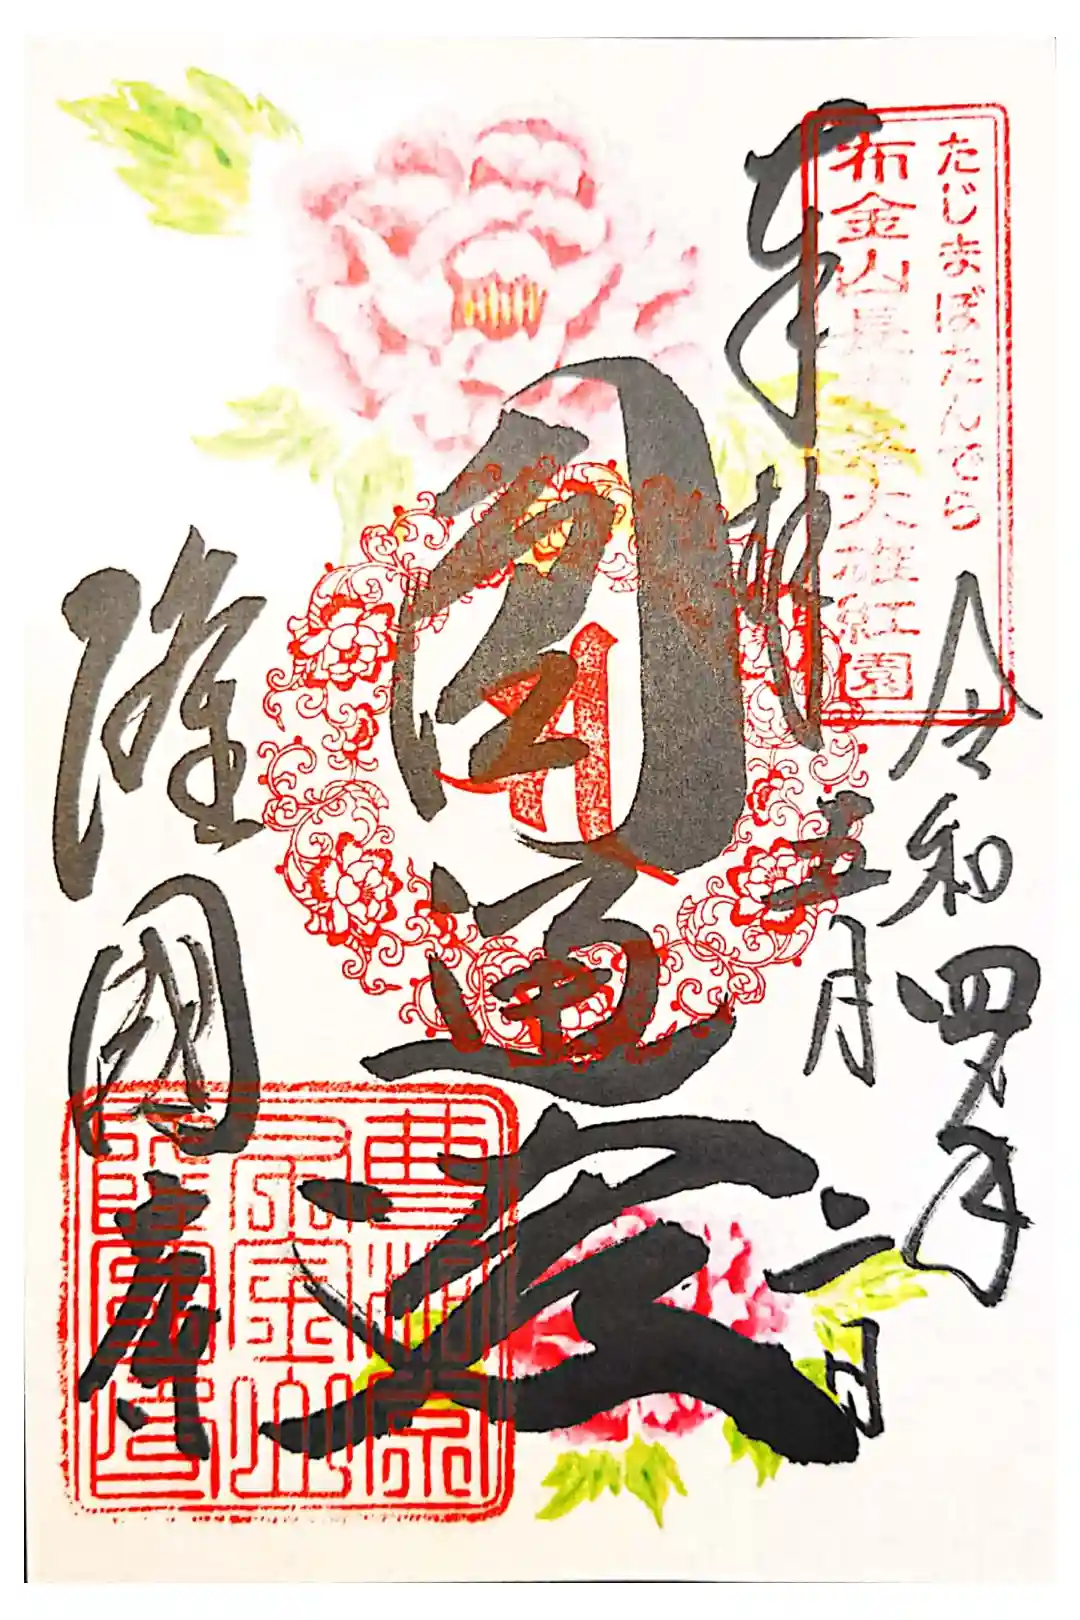 たじまぼたんでら
布金山 大雄紅園
奉拝
令和四年
五月
二日
圓通
隆國寺
曹洞宗
布金山
隆國寺印